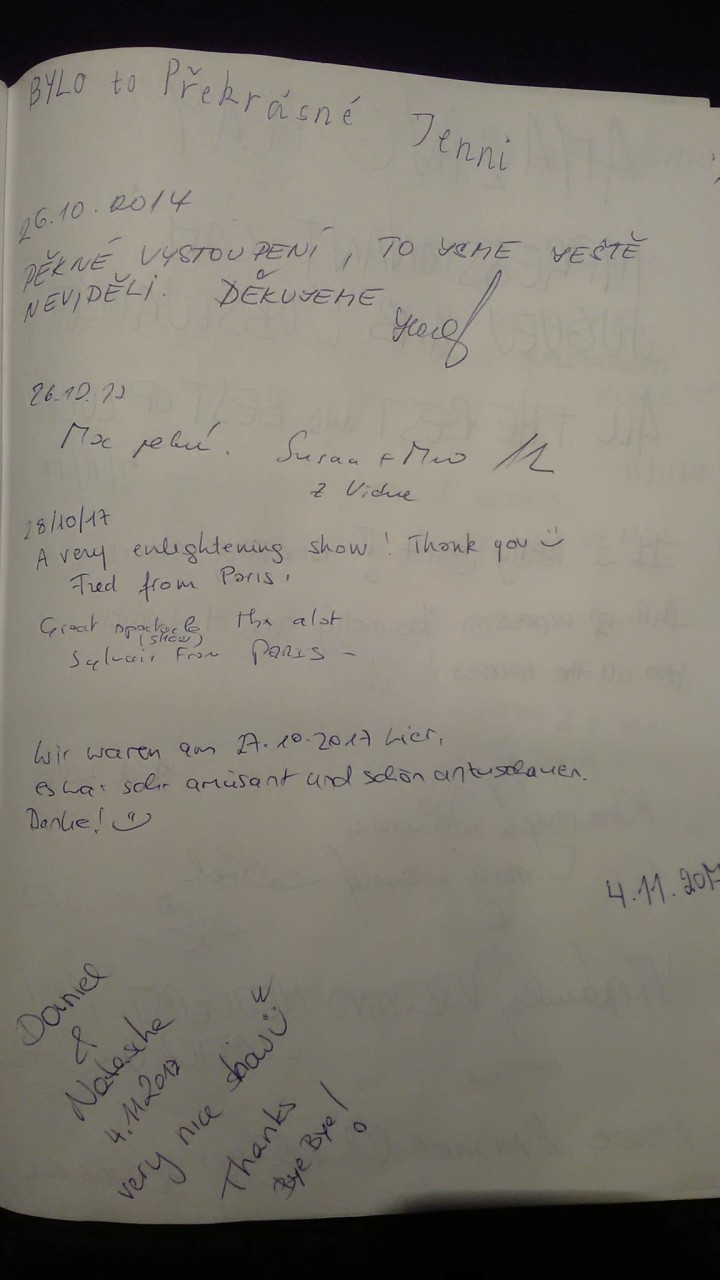 BYLO to Překrásné Jenni
26.10.2014
PĚKNÉ VYSTOUPENÍ, TO JSME JEŠTĚ
NEVIDĚLI. DĚKUJEME
26.10.
Moc pekné. Susan + Miro
z Vidne
28/10/17
A very enlightening show! Thank you
Fred from Paris.
Great spectacle thx alot
(show)
Sylvain From PARIS -
Wir waren am 27.10.2017 hier,
es war sehr amüsant und schön anzuschauen.
Danke!
4.11.2017
Daniel
&
Natascha
4.11.2017
very nice show
Thanks
Bye Bye!